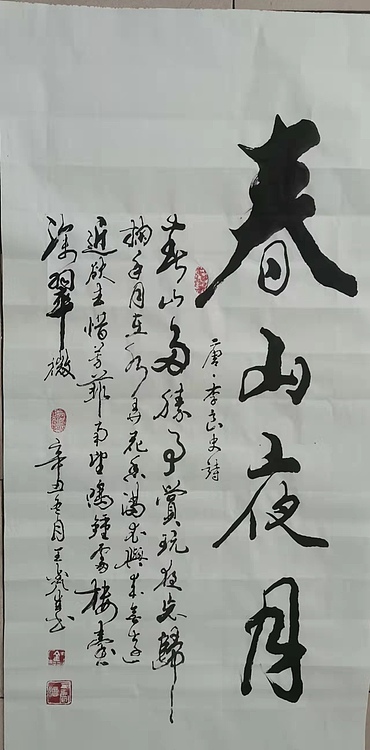 春山夜月
唐·李良史詩
春山多勝事賞玩夜忘歸
掬水月在手弄花香滿衣興來無遠
近欲去惜芳菲南望鳴鐘處樓臺
深翠微
辛丑冬月王